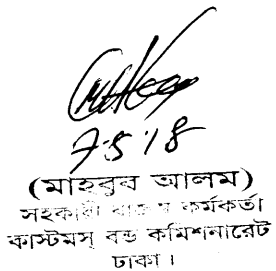 7-5-18
(মাহবুব আলম)
সহকারী রাজস্ব কর্মকর্তা
কাস্টমস্ বন্ড কমিশনারেট
ঢাকা।